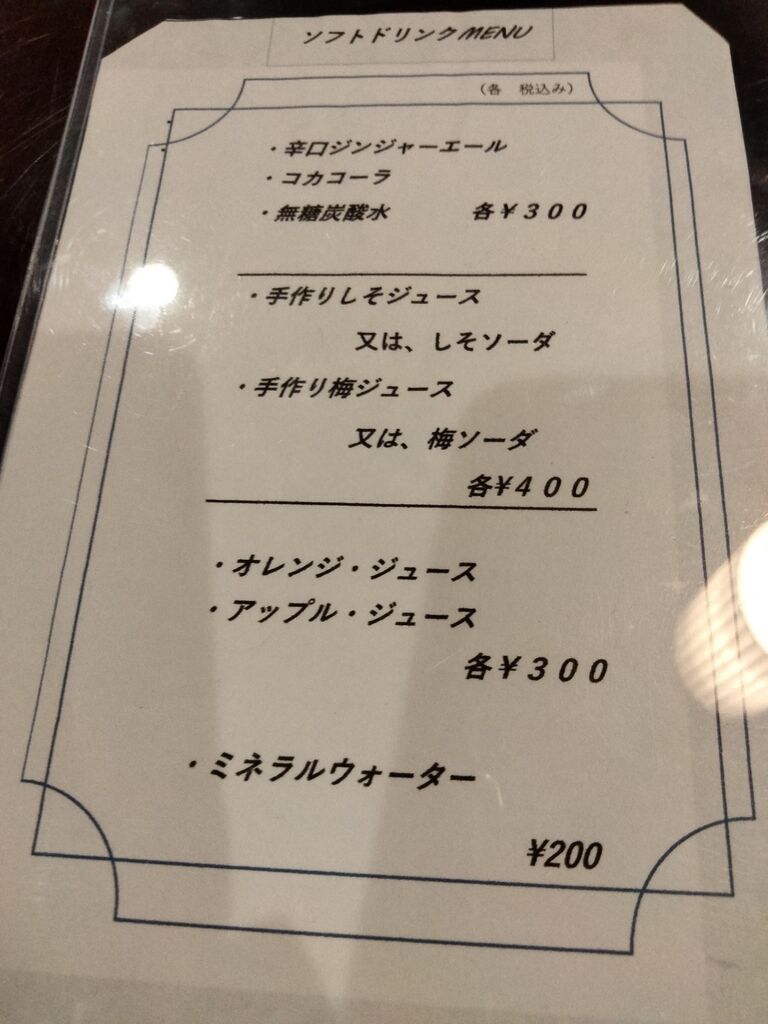 ソフトドリンクMENU
(各 税込み)
・辛口ジンジャーエール
・コカコーラ
・無糖炭酸水 各￥３００
・手作りしそジュース
又は、しそソーダ
・手作り梅ジュース
又は、梅ソーダ
各¥４００
・オレンジ・ジュース
・アップル・ジュース
各￥３００
・ミネラルウォーター
¥200